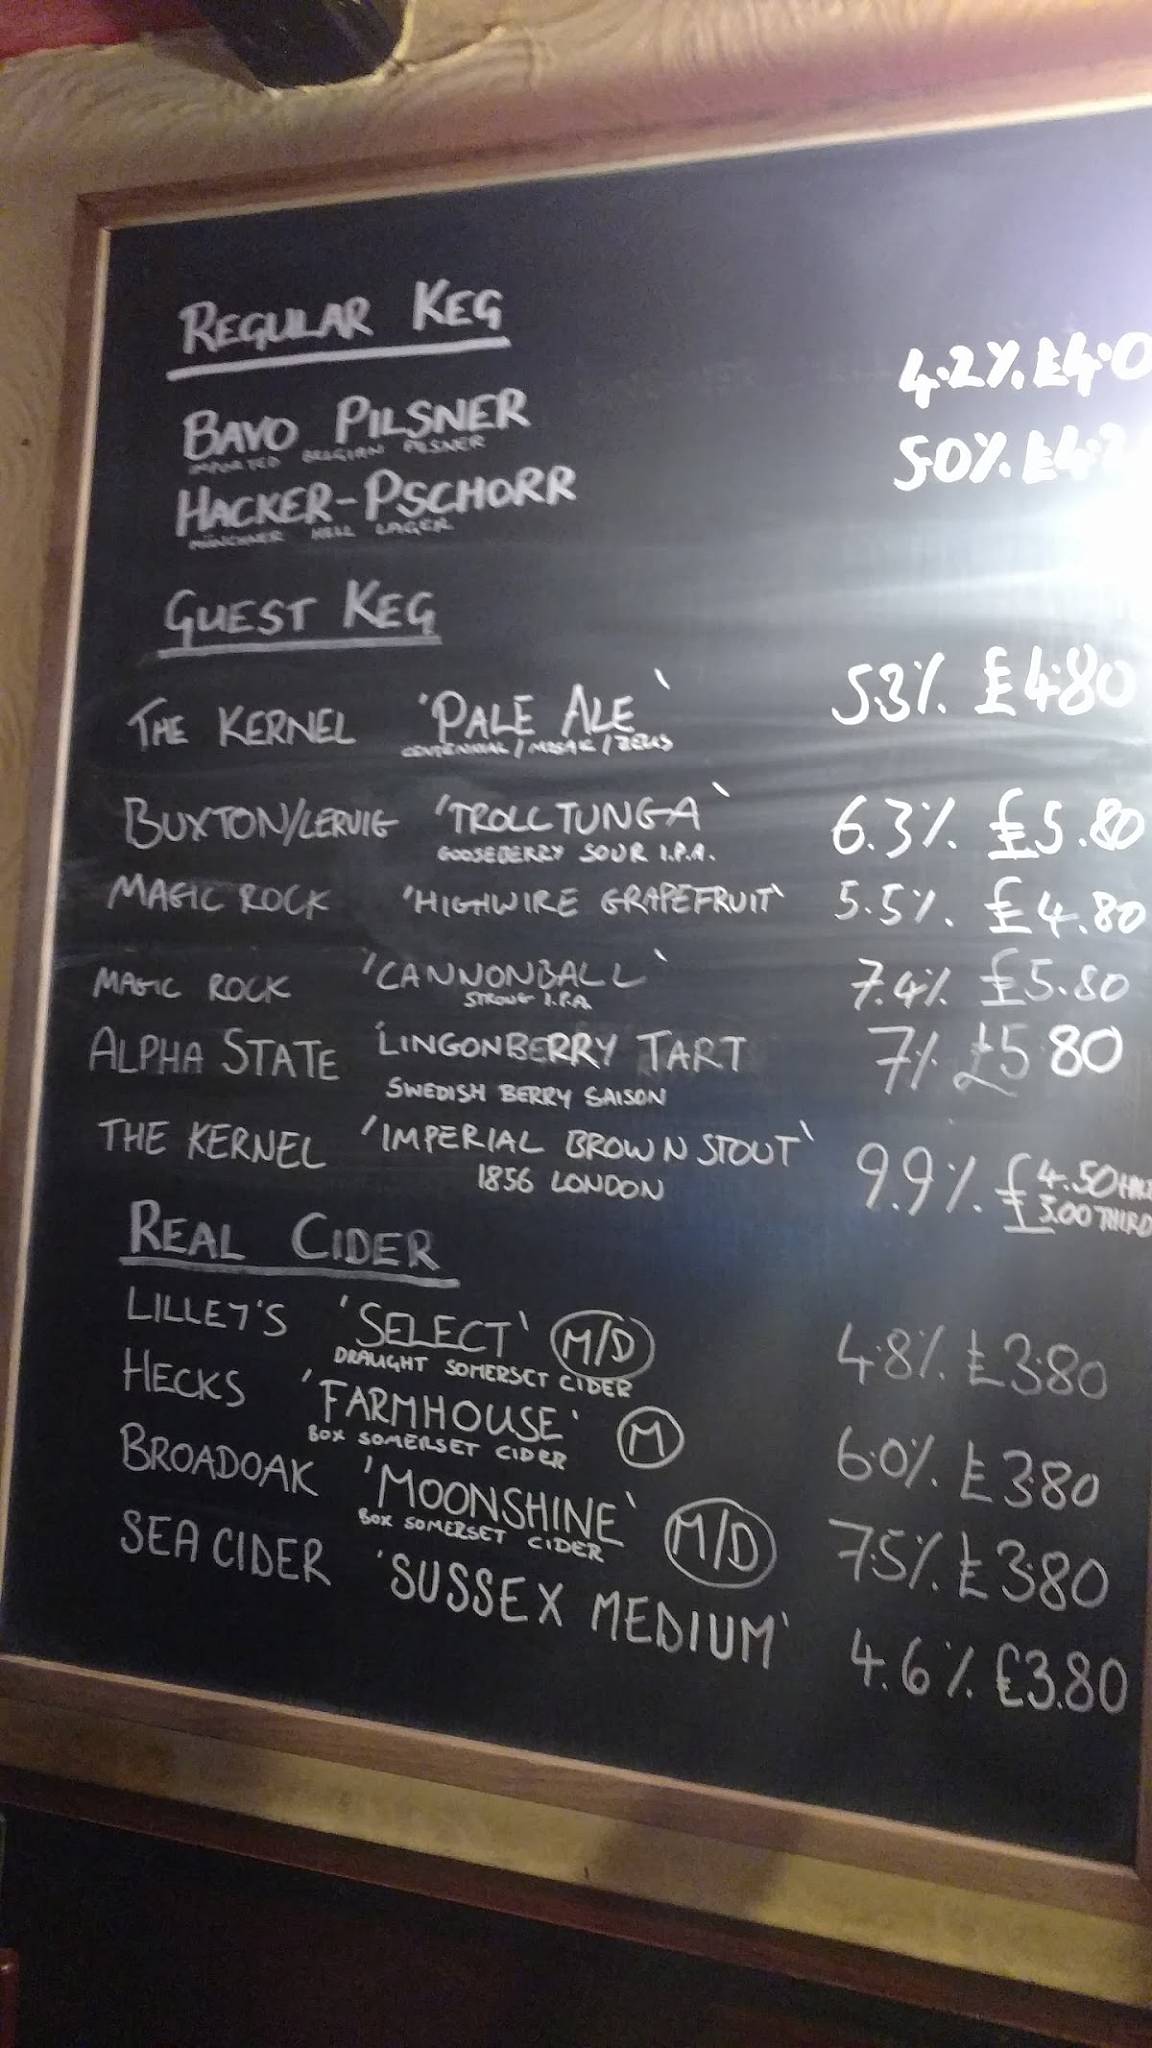 REGULAR KEG
BAVO PILSNER 4.2% £4.0
IMPORTED BELGIAN PILSNER
HACKER-PSCHORR 5.0% £4.2
MÜNCHNER HELL LAGER
GUEST KEG
THE KERNEL 'PALE ALE' 5.3% £4.80
CENTENNIAL / MOSAIC / ZEUS
BUXTON/LERVIG 'TROLLTUNGA' 6.3% £5.80
GOOSEBERRY SOUR I.P.A.
MAGIC ROCK 'HIGHWIRE GRAPEFRUIT' 5.5% £4.80
MAGIC ROCK 'CANNONBALL' 7.4% £5.80
STRONG I.P.A.
ALPHA STATE 'LINGONBERRY TART 7% £5.80
SWEDISH BERRY SAISON
THE KERNEL 'IMPERIAL BROWN STOUT' 9.9% £4.50 HALF
1856 LONDON 3.00 THIRD
REAL CIDER
LILLEY'S 'SELECT' M/D 4.8% £3.80
DRAUGHT SOMERSET CIDER
HECKS 'FARMHOUSE' M 6.0% £3.80
BOX SOMERSET CIDER
BROADOAK 'MOONSHINE' M/D 7.5% £3.80
BOX SOMERSET CIDER
SEA CIDER 'SUSSEX MEDIUM' 4.6% £3.80